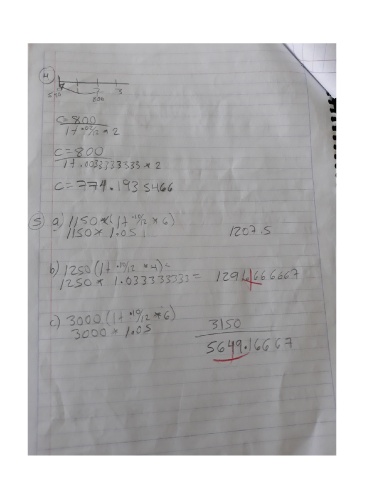 4)
800 3
C= 800
1+ .10/12 * 2
C= 800
1+ .033333333 * 2
C= 774.1935466
5) a) 1150*(1+ .10/12 * 6)
1150 * 1.05 1207.5
b) 1250(1+ .10/12 * 4)=
1250 * 1.033333333= 1291.666667
c) 3000(1+ .10/12 * 6)
3000 * 1.05 3150
5649.16667